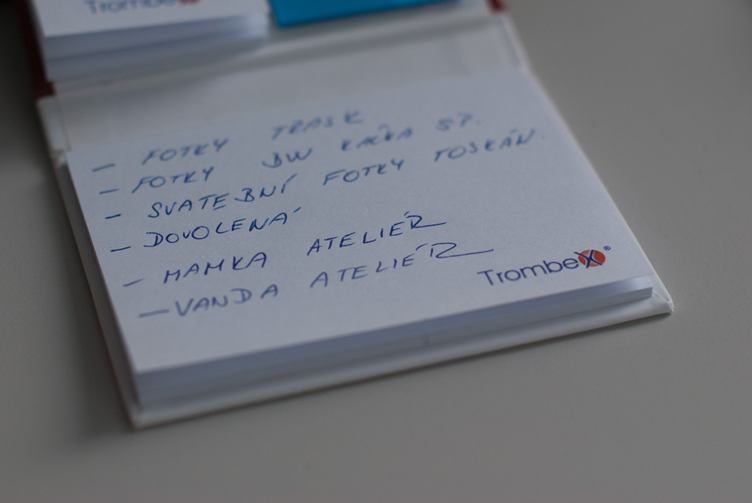 Trombex
– FOTKY TRASK
– FOTKY BW KAČKA 57.
– SVATEBNÍ FOTKY TOSKÁN.
– DOVOLENÁ
– MAMKA ATELIÉR
– VANDA ATELIÉR
TrombeX®